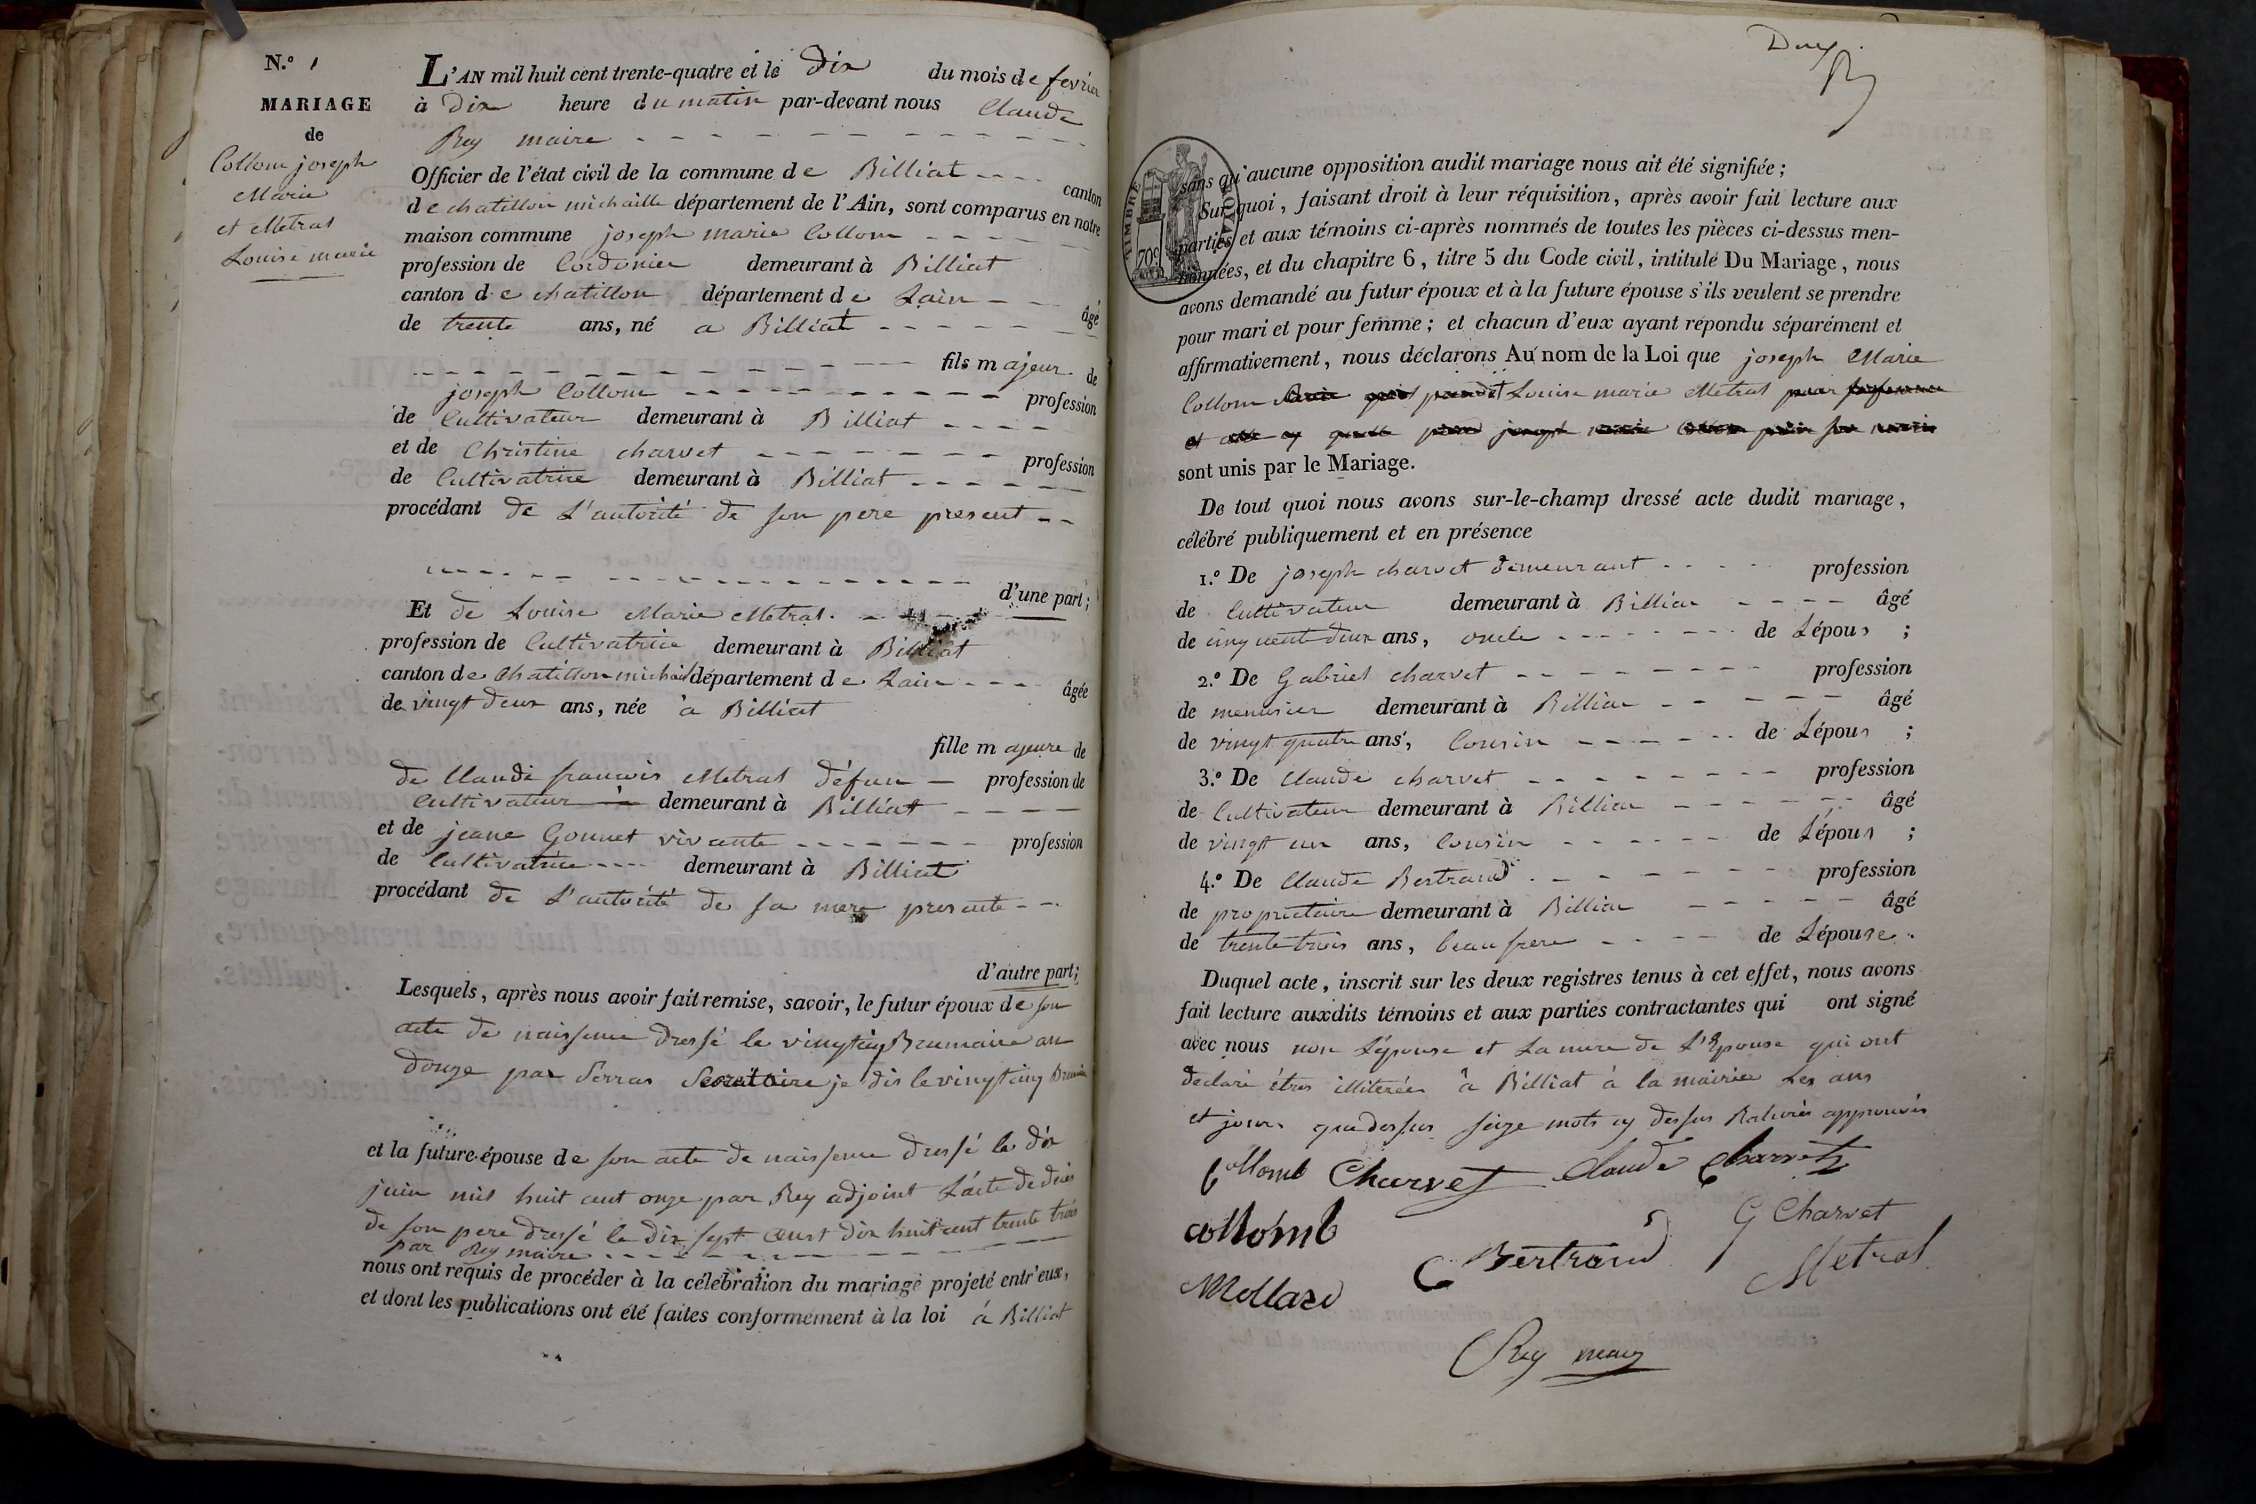 N.º 1
MARIAGE
de
Collom joseph
Marie
et Metral
Louise marie
L'AN mil huit cent trente-quatre et le dix du mois de fevrier
à dix heure du matin par-devant nous Claude
Rey maire
Officier de l'état civil de la commune de Billiat canton
de chatillon michaille département de l'Ain, sont comparus en notre
maison commune joseph marie Collom
profession de Cordonier demeurant à Billiat
canton de chatillon département de Lain âgé
de trente ans, né a Billiat
fils majeur de
joseph Collom profession
de Cultivateur demeurant à Billiat
et de Christine charvet profession
de Cultivatrice demeurant à Billiat
procédant de L'autorité de son pere present
d'une part;
Et de Louise Marie Metral
profession de Cultivatrice demeurant à Billiat
canton de Chatillon michail département de Lain âgée
de vingt deux ans, née à Billiat
fille majeure de
de Claude francois Metral défun profession de
Cultivateur à demeurant à Billiat
et de jeane Gonnet vivante profession
de Cultivatrice demeurant à Billiat
procédant de L'autorité de sa mere presente
d'autre part;
Lesquels, après nous avoir fait remise, savoir, le futur époux de son
acte de naissence dressé le vingt Brumaire an
douze par Serras Secretaire je dis le vingt cinq
et la future épouse de son acte de naissence dressé le dix
juin mil huit cent onze par Rey adjoint L'acte de déces
de son pere dressé le dix sept aoust dix huit cent trente trois
par Rey maire
nous ont requis de procéder à la célébration du mariage projeté entr'eux,
et dont les publications ont été faites conformément à la loi á Billiat
Deux
TIMBRE ROYAL
70 c
sans qu'aucune opposition audit mariage nous ait été signifiée;
Sur quoi, faisant droit à leur réquisition, après avoir fait lecture aux
parties et aux témoins ci-après nommés de toutes les pièces ci-dessus men-
tionnées, et du chapitre 6, titre 5 du Code civil, intitulé Du Mariage, nous
avons demandé au futur époux et à la future épouse s'ils veulent se prendre
pour mari et pour femme; et chacun d'eux ayant répondu séparément et
affirmativement, nous déclarons Au nom de la Loi que joseph Marie
Collom Louise marie Metral
sont unis par le Mariage.
De tout quoi nous avons sur-le-champ dressé acte dudit mariage,
célébré publiquement et en présence
1.º De joseph charvet demeurant profession
de Cultivateur demeurant à Billia âgé
de cinquent deux ans, oncle de Lépous ;
2.º De Gabriel charvet profession
de menusier demeurant à Billia âgé
de vingt quatre ans, Cousin de Lépous ;
3.º De Claude charvet profession
de Cultivateur demeurant à Billia âgé
de vingt un ans, Cousin de Lépous ;
4.º De Claude Bertrand profession
de propriétaire demeurant à Billia âgé
de trente trois ans, beau frere de Lépouse.
Duquel acte, inscrit sur les deux registres tenus à cet effet, nous avons
fait lecture auxdits témoins et aux parties contractantes qui ont signé
avec nous non L'épouse et La mere de L'Epouse qui ont
declaré étres illiterées à Billiat à la mairie Les ans
et jours que dessus seize mots cy dessus Raturés approuvés
Collomb Charvet Claude Charvet
collomb G Charvet
C Bertrand Metral
Mollard
Rey maire